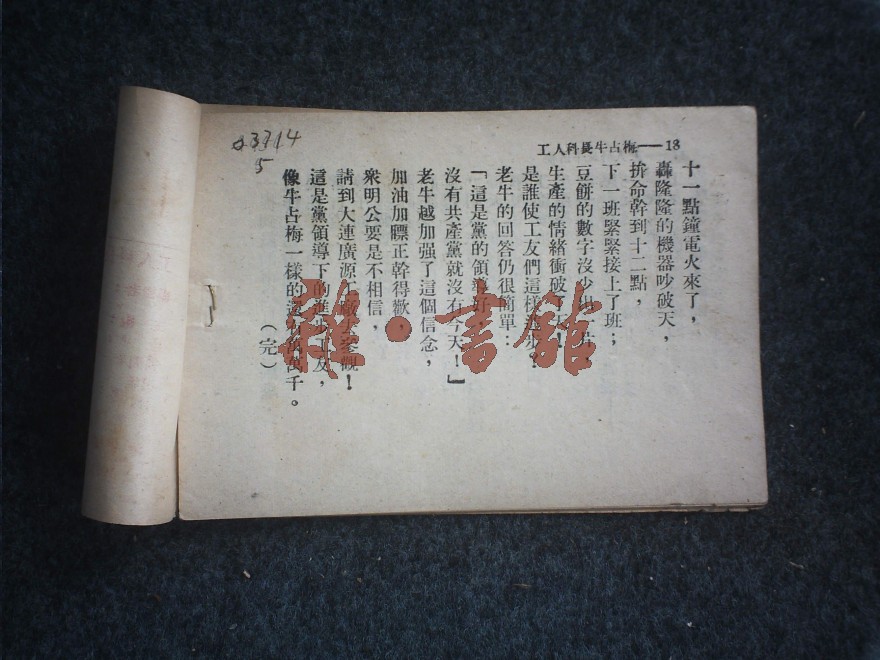 83714
5
工人科長牛占梅——18
十一點鐘電火來了，
轟隆隆的機器吵破天，
拚命幹到十二點，
下一班緊緊接上了班；
豆餅的數字沒少
生產的情緒衝破
是誰使工友們這樣
老牛的回答仍很簡單：
「這是黨的領導好
沒有共產黨就沒有今天！」
老牛越加强了這個信念，
加油加膘正幹得歡，
衆明公要是不相信，
請到大連廣源觀！
這是黨領導下的友，
像牛占梅一樣的萬千。
（完）
雜·書館